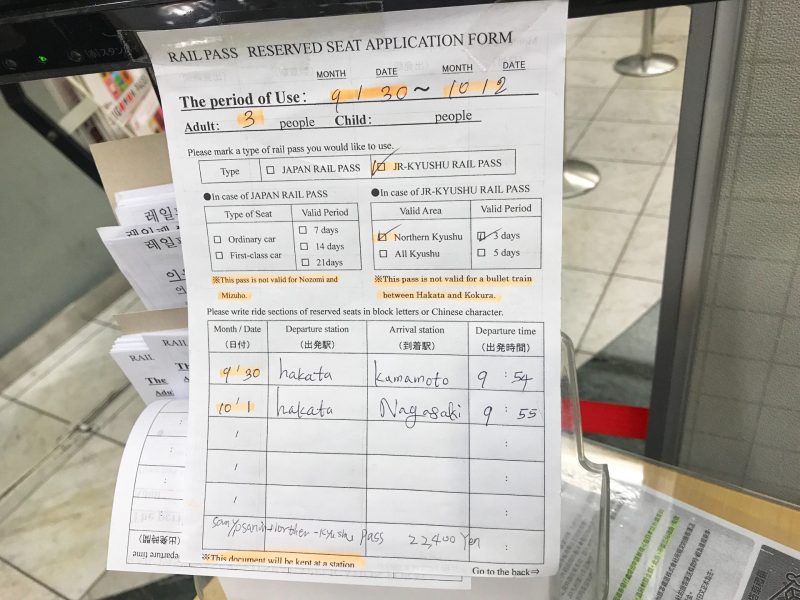 RAIL PASS RESERVED SEAT APPLICATION FORM
MONTH DATE MONTH DATE
The period of Use: 9 / 30 ~ 10 / 2
Adult: 3 people Child: people
Please mark a type of rail pass you would like to use.
Type □ JAPAN RAIL PASS ☑ JR-KYUSHU RAIL PASS
●In case of JAPAN RAIL PASS ●In case of JR-KYUSHU RAIL PASS
Type of Seat Valid Period Valid Area Valid Period
□ Ordinary car
□ First-class car
□ 7 days
□ 14 days
□ 21days
☑ Northern Kyushu ☑ 3 days
□ All Kyushu □ 5 days
※This pass is not valid for Nozomi and
Mizuho.
※This pass is not valid for a bullet train
between Hakata and Kokura.
Please write ride sections of reserved seats in block letters or Chinese character.
Month / Date Departure station Arrival station Departure time
(日付) (出発駅) (到着駅) (出発時間)
9 / 30 hakata kumamoto 9 : 54
10 / 1 hakata Nagasaki 9 : 55
/ :
/ :
/ :
Pass 22,400 Yen :
※This document will be kept at a station.
Go to the back⇒
레일
레일
RAIL
RAIL
The
Adu
(出発時間)
Departure time